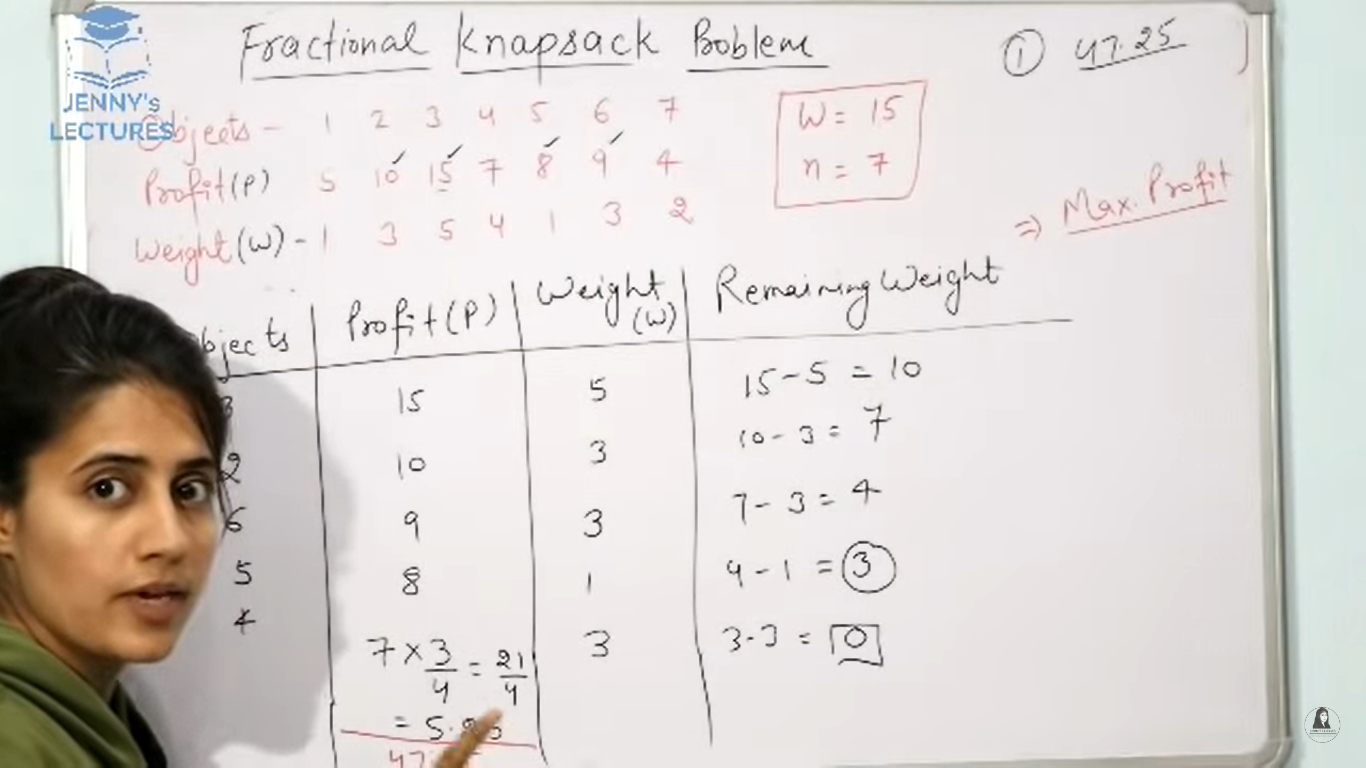 Fractional Knapsack Problem
① 47.25
JENNY's
LECTURES
Objects - 1 2 3 4 5 6 7
Profit(P) 5 10 15 7 8 9 4
Weight(W) - 1 3 5 4 1 3 2
W = 15
n = 7
⇒ Max. Profit
Objects Profit(P) Weight (W) Remaining Weight
3 15 5 15-5 = 10
2 10 3 10-3 = 7
6 9 3 7-3 = 4
5 8 1 4-1 = 3
4 7 × 3/4 = 21/4 3 3-3 = 0
= 5.25
47